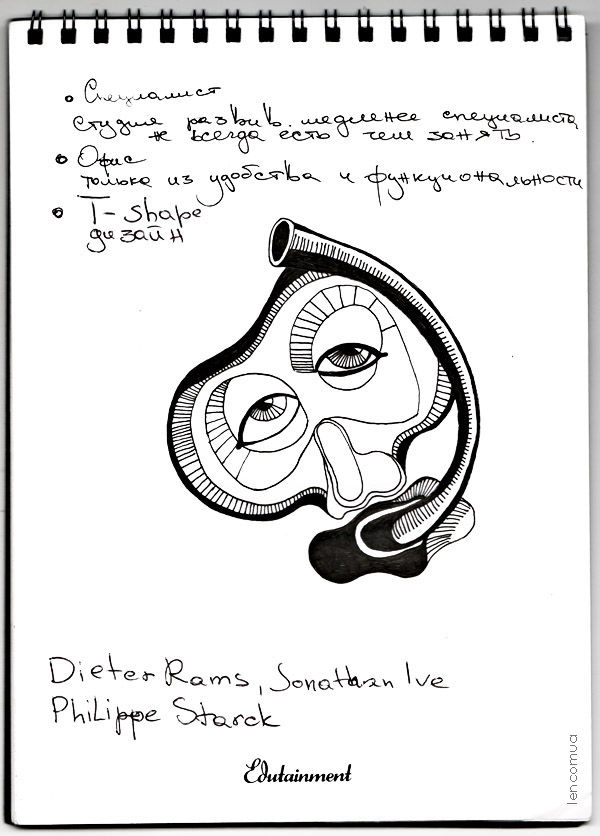 • Специалист
студия развив. медленее специалиста
не всегда есть чем занять.
• Офис
только из удобства и функциональности
• T-shape
дизайн
Dieter Rams, Jonathan Ive
Philippe Starck
Edutainment
lencomua